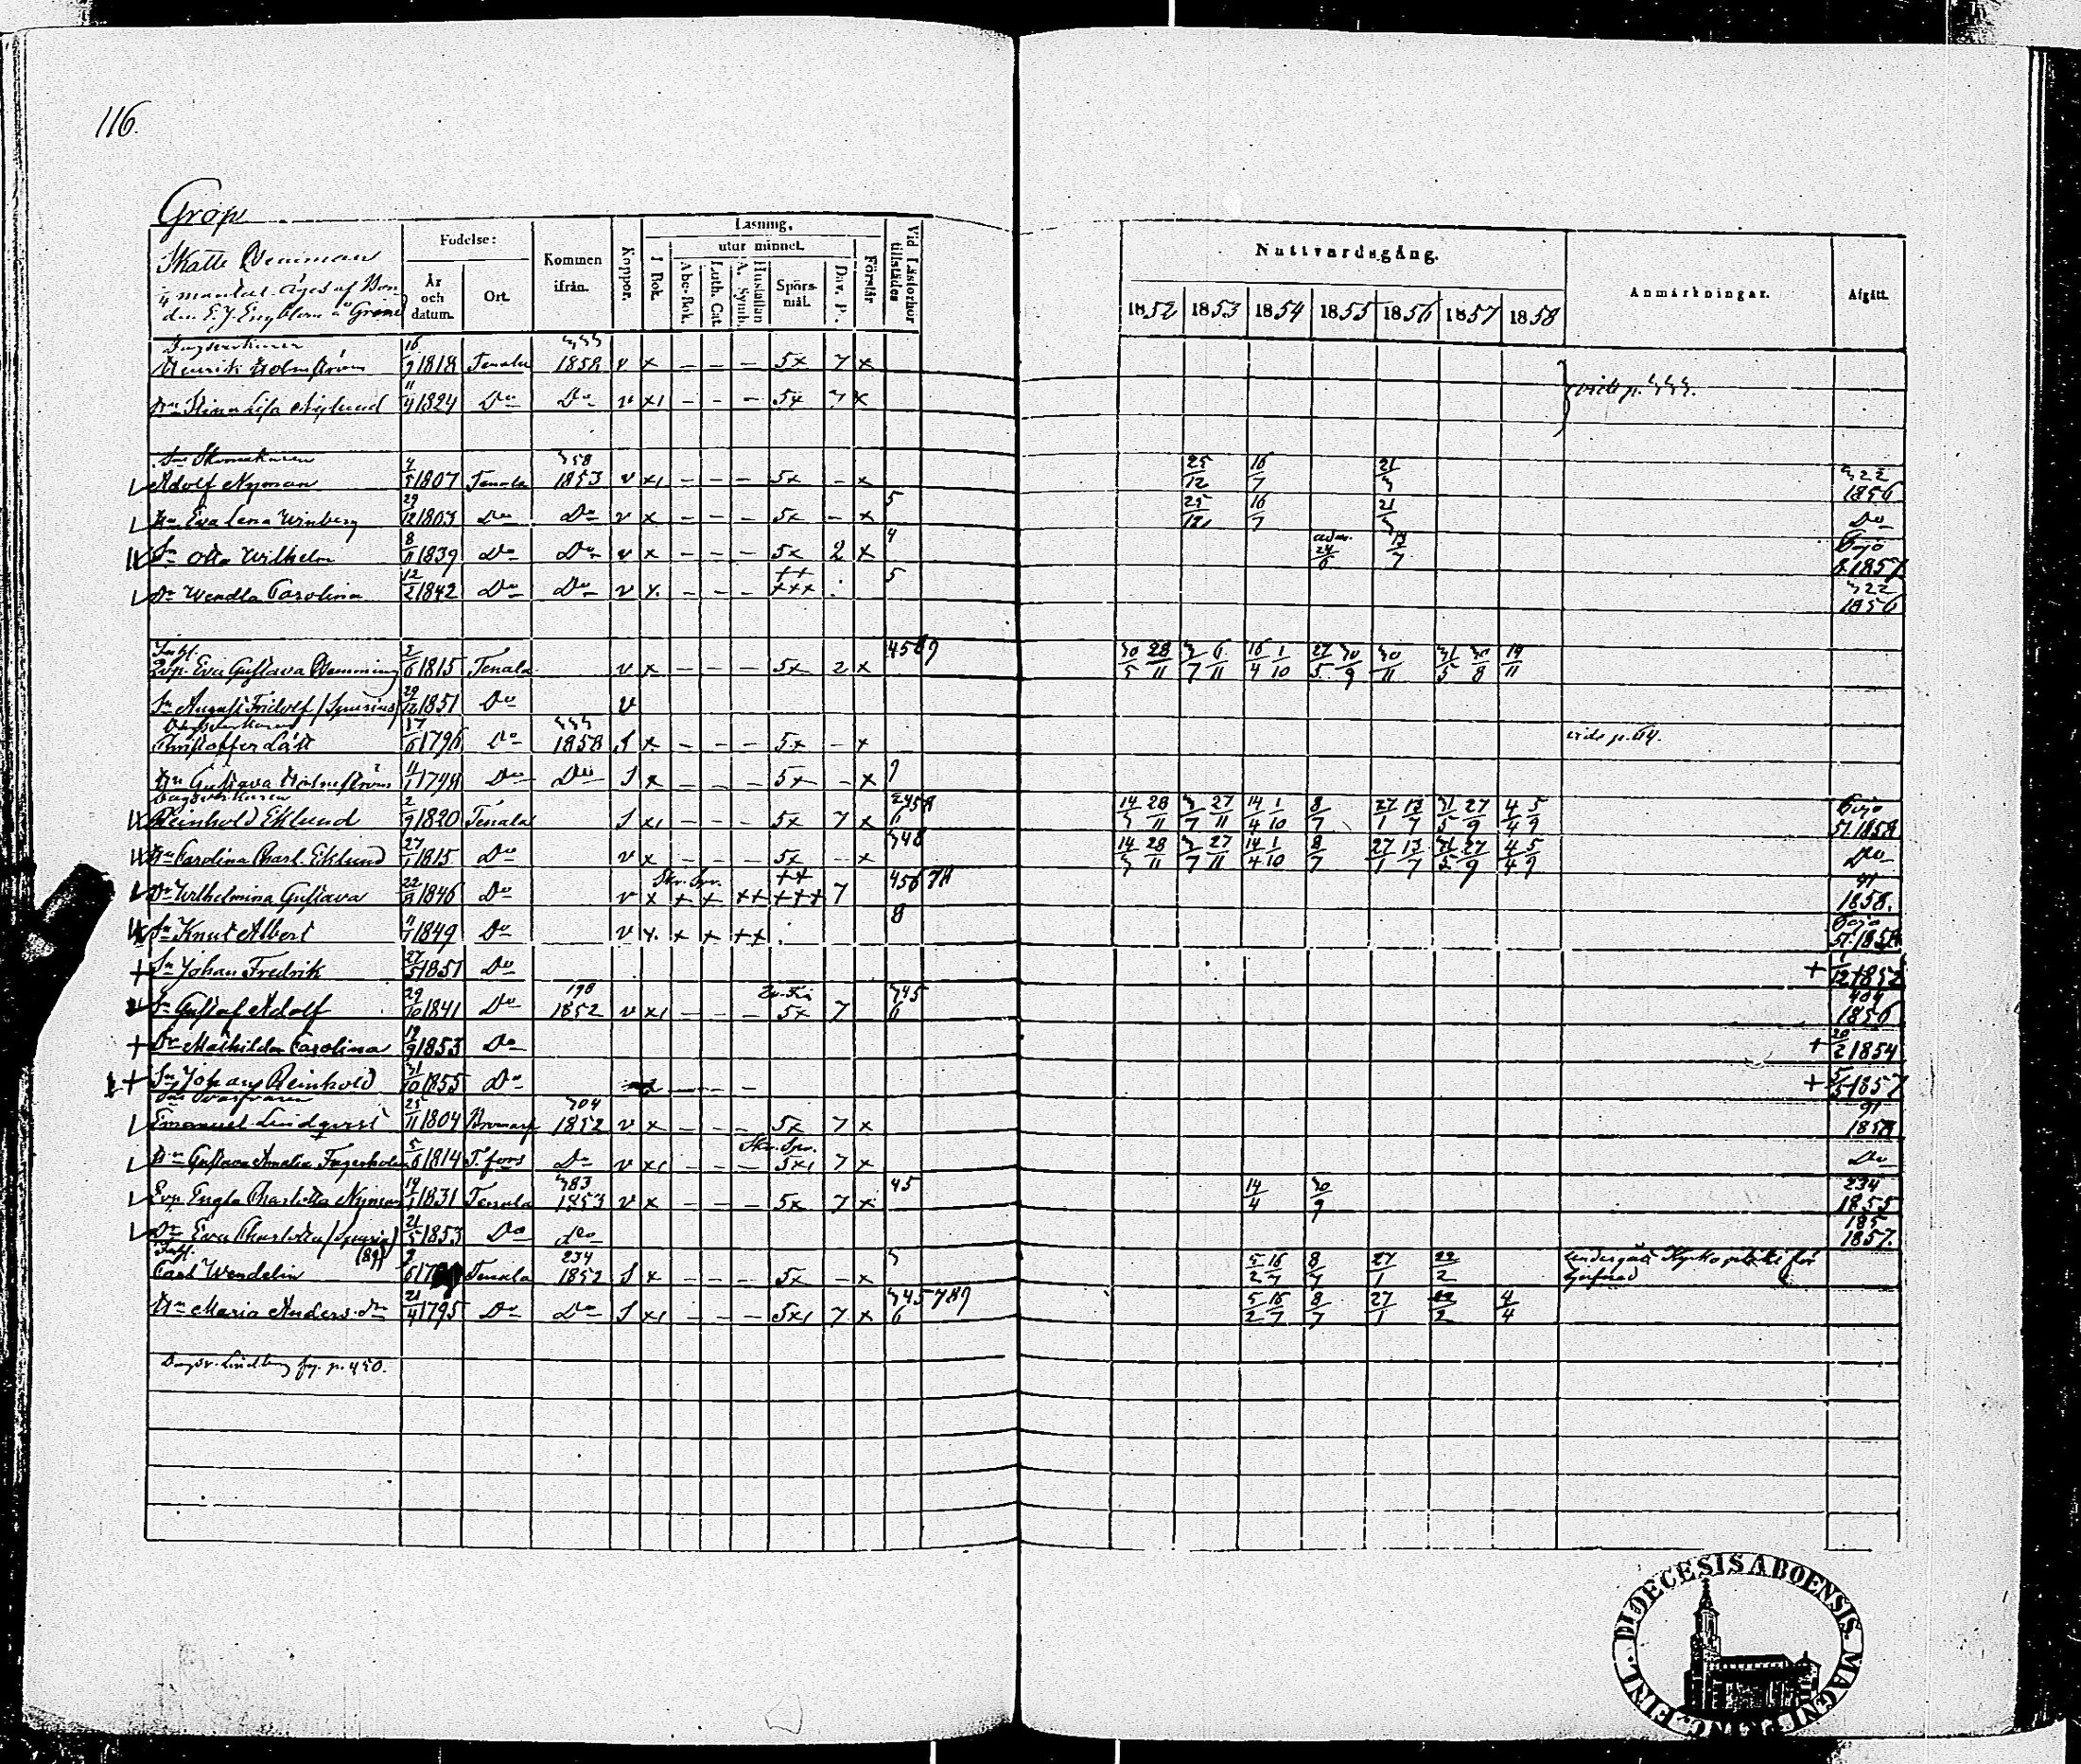 116.
Grop
Skatte Wenman
1/4 mantal. Äges af Bon-
den E. J. Engblom å Gröne
Födelse:
År och datum.
Ort.
Kommen ifrån.
Koppor.
Läsning.
I Bok.
utur minnet.
Abc-Bok.
Luth. Cat.
Hustaflan A. Symb.
Spörsmål.
Dav. P.
Förstår
Vid Läsförhör tillstädes
Nattvardsgång.
1852 1853 1854 1855 1856 1857 1858
Anmärkningar.
Afgått.
Dagsverkaren 16 333
Henrik Holmström 9 1818 Tenala 1858 v x – – – 5x 7 x
11
Hu Stina Lisa Nylund 4 1824 Do Do v x1 – – – 5x 7 x
vide p. 333.
Inh. Skomakaren 4 358 25 16 21 322
Adolf Nyman 5 1807 Tenala 1853 v x1 – – – 5x – x 12 7 3 1856
29 5 25 16 21
Hu Eva Lena Winberg 12 1803 Do Do v x – – – 5x – x 12 7 3 Do
8 4 adm. 13 Pojo
Sn Otto Wilhelm 11 1839 Do Do v x – – – 5x 2 x 24 6 7 8. 1857
12 ++ 5 322
Dr Wendla Carolina 2 1842 Do Do v x. – – – +++ 1856
Inh. 2 4589 30 28 3 6 16 1 27 30 30 31 30 19
Eva Gustava Wenning 6 1815 Tenala v x – – – 5x 2 x 5 11 7 11 4 10 5 9 11 5 8 11
29
Sn August Fridolf (Spurius) 12 1851 Do v
Dagsverkaren 17 333
Christoffer Lätt 6 1796 Do 1858 S x – – – 5x – x vide p. 64.
4 9
Hu Gustava Holmström 1 1798 Do Do S x – – – 5x – x
Dagsverkaren 2 2458 14 28 3 27 14 1 8 27 13 31 27 4 5 Pojo
Reinhold Eklund 9 1820 Tenala S x1 – – – 5x 7 x 6 3 11 7 11 4 10 7 1 7 5 9 4 9 51. 1858
27 348 14 28 3 27 14 1 8 27 13 31 27 4 5
Hu Carolina Charl. Eklund 1 1815 Do v x – – – 5x – x 3 11 7 11 4 10 7 1 7 5 9 4 9 Do
22 Skr. Spr. ++ 45678 91
Dr Wilhelmina Gustava 8 1846 Do v x + + ++ +++ 7 1858.
8 Pojo
Sn Knut Albert 1849 Do v x. + + ++ 51. 1858
27
+ Sn Johan Fredrik 5 1851 Do + 12 1852
29 198 345 404
Sn Gustaf Adolf 10 1841 Do 1852 v x1 – – – 5x 7 6 1856
19 20
+ Dr Mathilda Carolina 9 1853 Do + 2 1854
31
+ Sn Johan Reinhold 10 1855 Do – – – – + 5 1857
25 304 91
Emanuel Lindqvist 11 1804 Bromarf 1852 v x – – – 5x 7 x 1858
5 Skr. Spr.
Hu Gustava Amalia Fagerholm 6 1814 T. fors Do v x1 – – – 5x1 7 x Do
19 383 45 14 30 234
Engla Charlotta Nyman 1 1831 Tenala 1853 v x – – – 5x 7 x 4 9 1855
21 185
Dr Eva Charlotta (Spuria) 5 1853 Do Do 1857.
Inh. (89) 234 5 16 8 27 22 undergått Kyrkoplikt för
Carl Wendelin Tenala 1852 S x – – – 5x – x 2 7 7 1 2
21 345789 5 16 8 27 22 4
Hu Maria Anders dr 4 1795 Do Do S x1 – – – 5x1 7 x 6 2 7 7 1 2 4
Dagsv. Lindberg p. 450.
DIOECESIS ABOENSIS. MAGNI DUC. FINL.